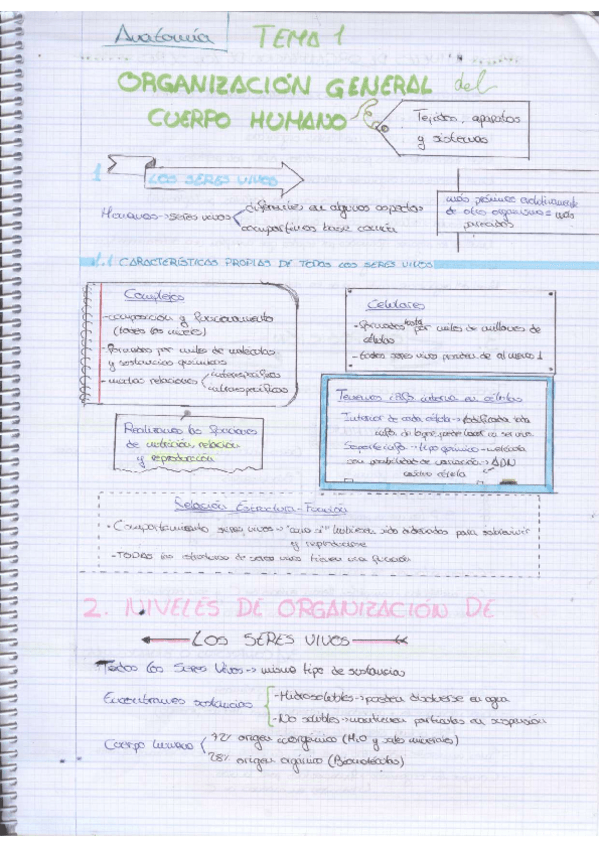 Anatomía
TEMA 1
ORGANIZACIÓN GENERAL del
CUERPO HUMANO
Tejidos, aparatos
y sistemas
1
LOS SERES VIVOS
Humanos→seres vivos
diferentes en algunos aspectos
compartimos base común
más próximos evolutivamente
de otro organismo = más
parecidos
1.1 CARACTERÍSTICAS PROPIAS DE TODOS LOS SERES VIVOS
Complejos
-composición y funcionamiento
(todos los niveles)
-Formados por miles de moléculas
y sustancias químicas
-muchas relaciones
interespecíficas
intraespecíficas
Celulares
-Formados por miles de millones de
células
-todos seres vivo poseen de al menos 1
Realizamos las funciones
de nutrición, relación
y reproducción
Tenemos info interna en células
Interior de cada célula→ codificada toda
info
→ tipo químico→molécula
con posibilidad de variación→ADN
célula
Relación Estructura-Función
• Comportamiento seres vivos→ "como si" hubiesen sido diseñados para sobrevivir
y reproducirse
-TODAS las estructuras de seres vivos tienen una función
2. NIVELES DE ORGANIZACIÓN DE
LOS SERES VIVOS
Todos los Seres Vivos→ mismo tipo de sustancias
Encontramos sustancias
-Hidrosolubles→pueden disolverse en agua
-No solubles→mantienen partículas en suspensión
Cuerpo humano
72% origen inorgánico (H2O y sales minerales)
28% origen orgánico (Biomoléculas)